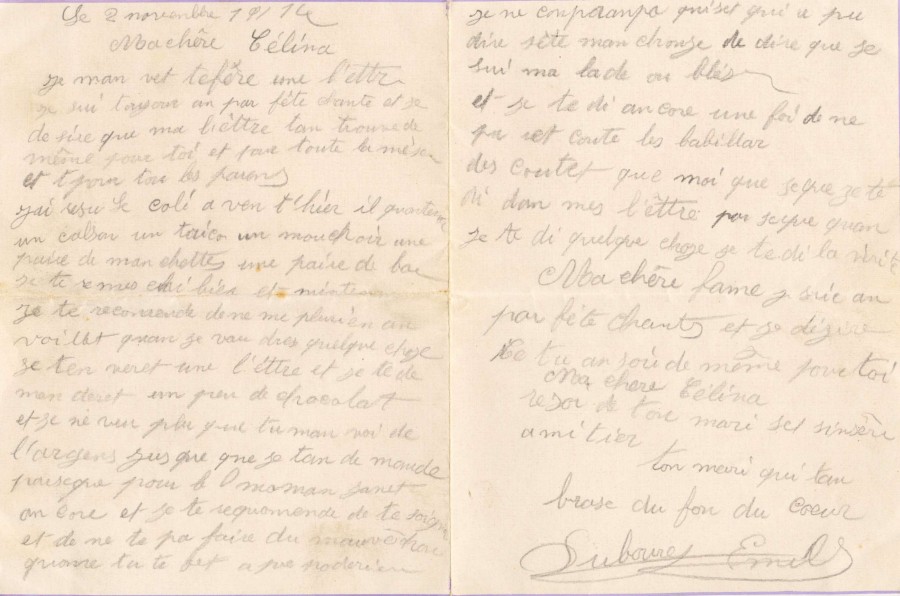 Le 2 novembre 1914
Ma chère Célina
je man vet te fère une l'ettre
je sui toujour an parfête chante et je
desire que ma l'ièttre tan trouve de
même pour toi et pour toute la méson
et pour tou les parens
jai resu le coli a ven t'hier il
un calson un un mouchoir une
paire de manchettes une paire de ba
je te et mintenan
je te recomende de ne me plu rien an
voillet quan je vau dres quelque choze
je ten veret une l'ettre et je te de
man deret un peu de chocolat
et je ne veu plu que tu man voi de
l'argens jusque que je tan de mande
paseque pour le moman janet
an core et je te requomende de te soign
et de ne te pa faire du mauvè
quome tu te fet a
je ne conpran pa qui set qui a pu
dire sète man chonze de dire que je
sui ma lade ou blés
et je te di ancore une foi de ne
pa et coute les babillar
des coutet que moi que seque je te
di dan mes l'èttre par seque quan
je te di quelque choze je te di la vérité
Ma chère fame je suie an
parfête chantz et je dézire
ke tu an soi de même pour toi
Ma chere Célina
resoi de ton mari ses sinsère
amitier
ton mari qui tan
brase du fon du coeur
Emile